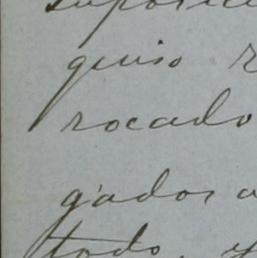 quiso
rocado
gados
todo, y